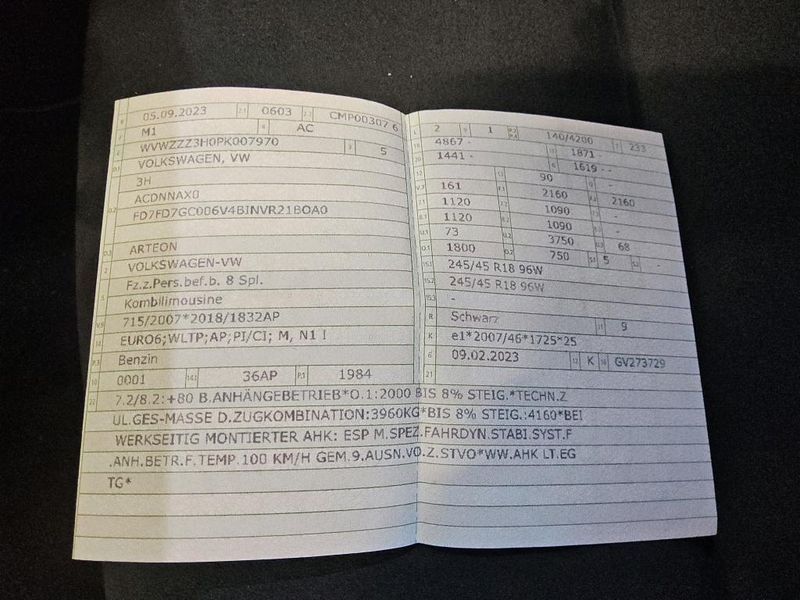 B 05.09.2023 2.1 0603 2.2 CMP00307 6
J M1 4 AC
E WVWZZZ3H0PK007970 3 5
VOLKSWAGEN, VW
3H
ACDNNAX0
D.2 FD7FD7GC006V4BINVR21BOA0
D.3 ARTEON
2 VOLKSWAGEN-VW
Fz.z.Pers.bef.b. 8 Spl.
5 Kombilimousine
V.9 715/2007*2018/1832AP
14 EURO6;WLTP;AP;PI/CI; M, N1 I
P.3 Benzin
10 0001 14.1 36AP P.1 1984
L 2 9 1 P.2 P.4 140/4200 T 233
18 4867 - 19 1871 -
20 1441 - G 1619 - -
12 - 13 90 Q -
V.7 161 F.1 2160 F.2 2160
7.1 1120 7.2 1090 7.3 -
8.1 1120 8.2 1090 8.3 -
U.1 73 U.2 3750 U.3 68
O.1 1800 O.2 750 S.1 5 S.2 -
15.1 245/45 R18 96W
15.2 245/45 R18 96W
15.3 -
R Schwarz 11 9
K e1*2007/46*1725*25
6 09.02.2023 17 K 16 GV273729
21
22 7.2/8.2:+80 B.ANHÄNGEBETRIEB*O.1:2000 BIS 8% STEIG.*TECHN.Z
UL.GES-MASSE D.ZUGKOMBINATION:3960KG*BIS 8% STEIG.:4160*BEI
WERKSEITIG MONTIERTER AHK: ESP M.SPEZ.FAHRDYN.STABI.SYST.F
.ANH.BETR.F.TEMP.100 KM/H GEM.9.AUSN.VO.Z.STVO*WW.AHK LT.EG
TG*